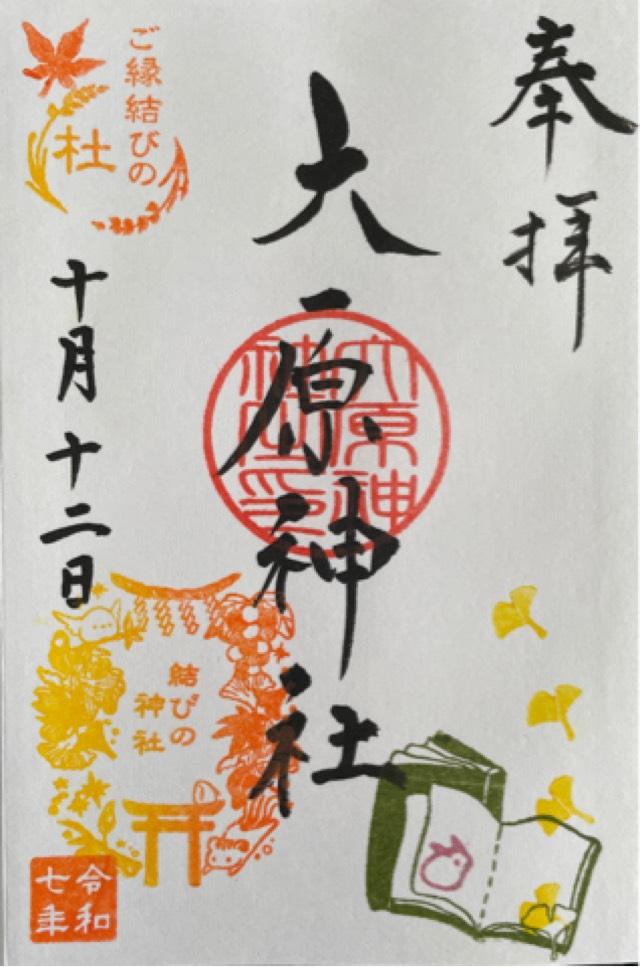 奉拝
大原神社
大原神
社之印
ご縁結びの
杜
十月十二日
結びの
神社
令和
七年